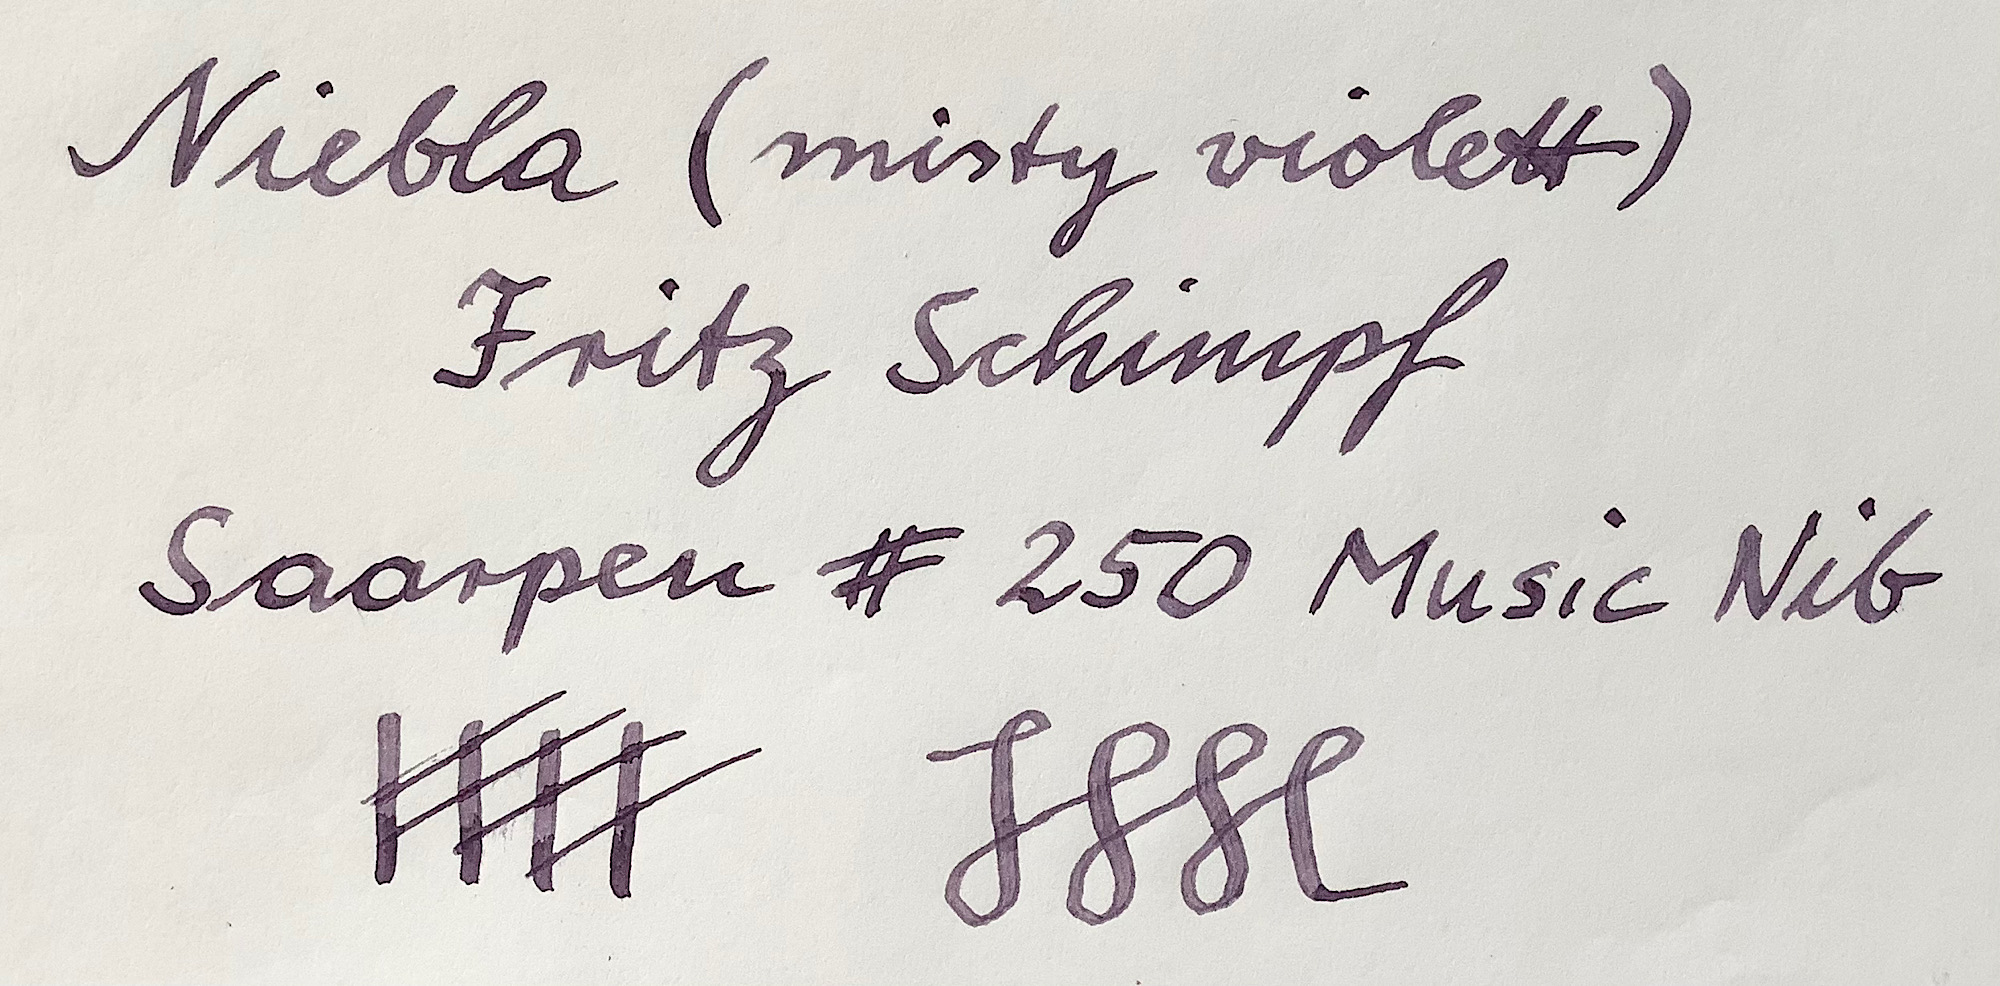 Niebla (misty violett)
Fritz Schimpf
Saarpen # 250 Music Nib